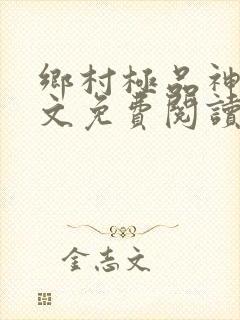 鄉村極品神
文免費閱讀
金志文